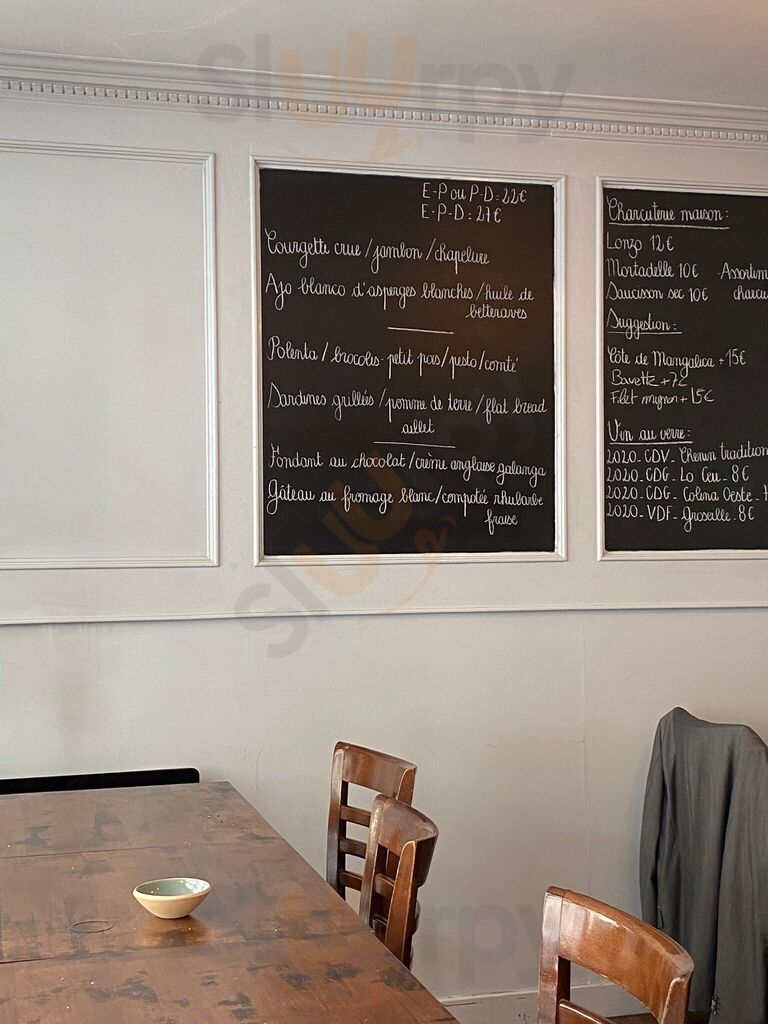 sluurpy
E-P ou P-D = 22€
E-P-D = 27€
Courgette crue / jambon / chapelure
Ajo blanco d'asperges blanches / huile de
betteraves
Polenta / brocolis - petit pois / pesto / comté
Sardines grillées / pomme de terre / flat bread
aillet
Fondant au chocolat / crème anglaise galanga
Gâteau au fromage blanc / compotée rhubarbe
fraise
Charcuterie maison :
Lonzo 12€
Mortadelle 10€ - Assortim
Saucisson sec 10€ charcu
Suggestion :
Côte de Mangalica + 15€
Bavette + 7€
Filet mignon + 15€
Vin au verre :
2020 - CDV - Chemin tradition
2020 - CDG - Lo Ceu - 8€
2020 - CDG - Colina Oeste -
2020 - VDF - Groseille - 8€
sluurpy
sluurpy